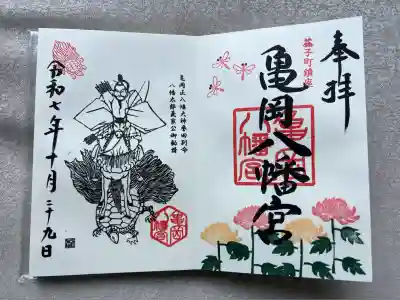 奉拝
益子町鎮座
亀岡八幡宮
亀岡
八幡宮
亀岡正八幡大神誉田別命
八幡太郎義家公御勧請
令和七年十月二十九日
亀岡